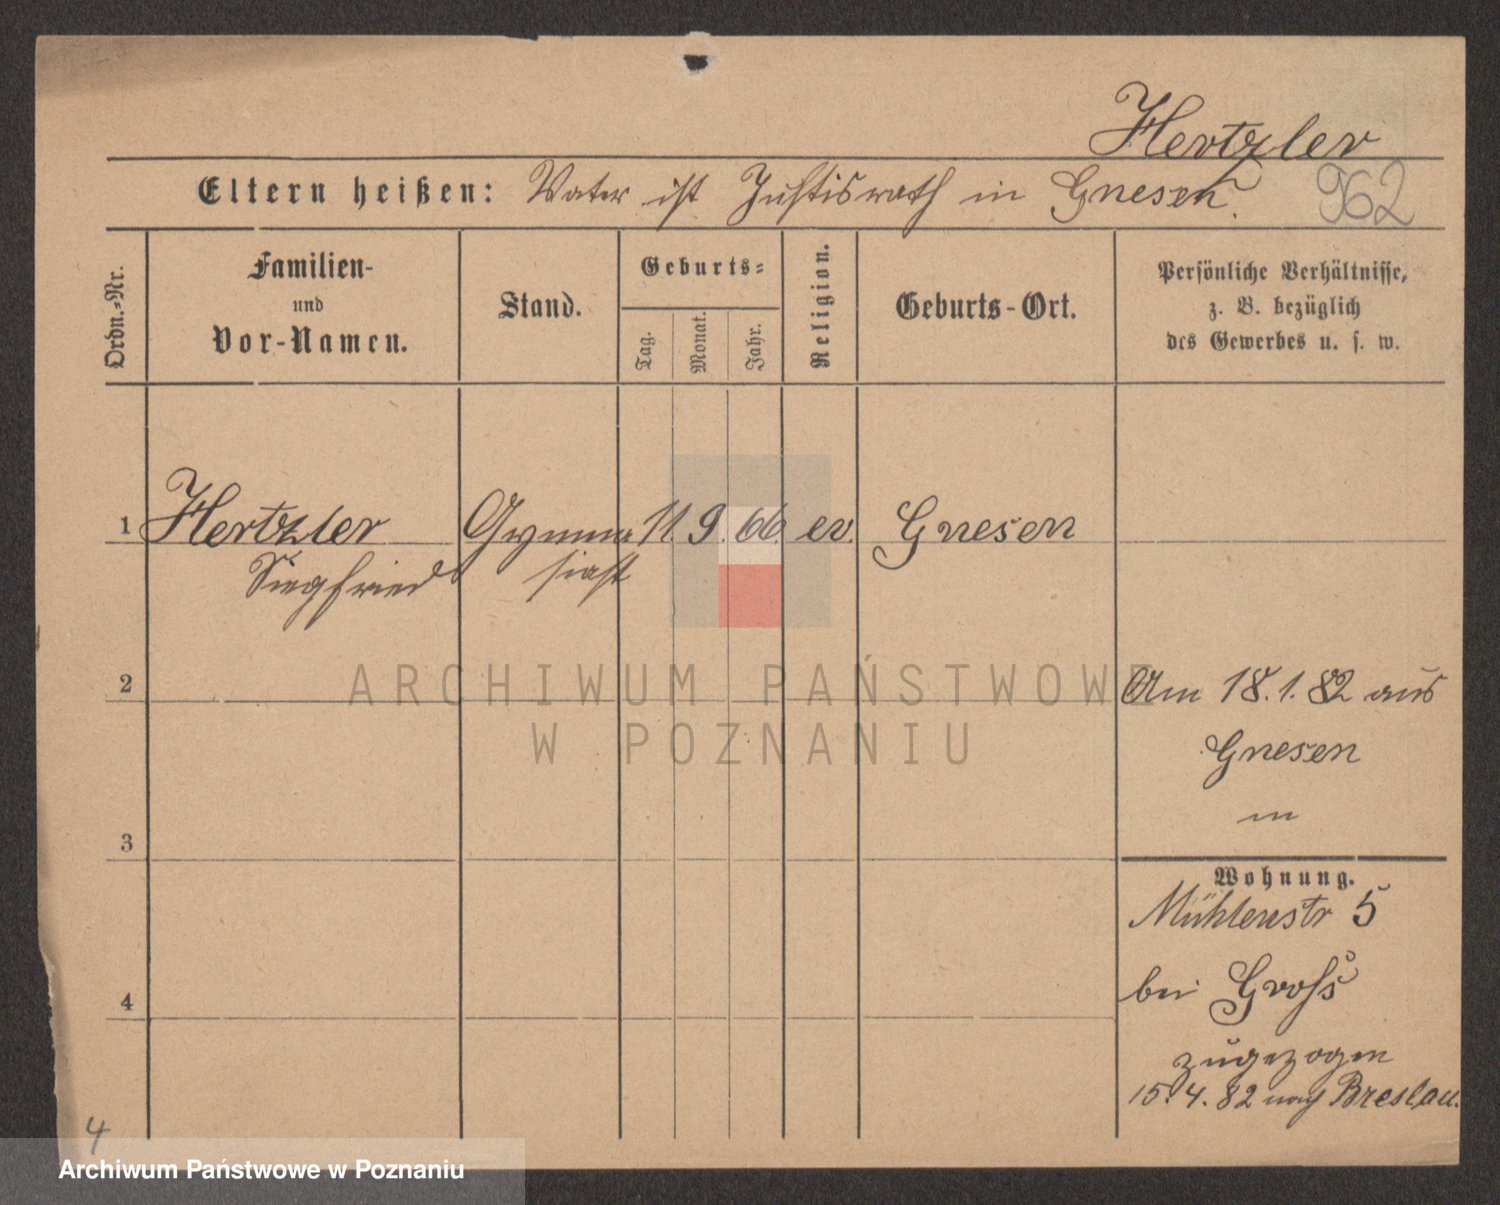 Hertzler
Eltern heißen: Vater ist Justisrath in Gnesen.
962
Ordn.-Nr.
Familien-
und
Vor-Namen.
Stand.
Geburts-
Tag.
Monat.
Jahr.
Religion.
Geburts-Ort.
Persönliche Verhältnisse,
z. B. bezüglich
des Gewerbes u. s. w.
1 Hertzler Gymna 11. 9. 66. ev. Gnesen
Siegfried siast
2
Am 18.1.82 aus
Gnesen
in
3
Wohnung.
Mühlenstr 5
bei Groß
4
zugezogen
15.4.82 nach Breslau.
4
ARCHIWUM PAŃSTWOWE
W POZNANIU
Archiwum Państwowe w Poznaniu